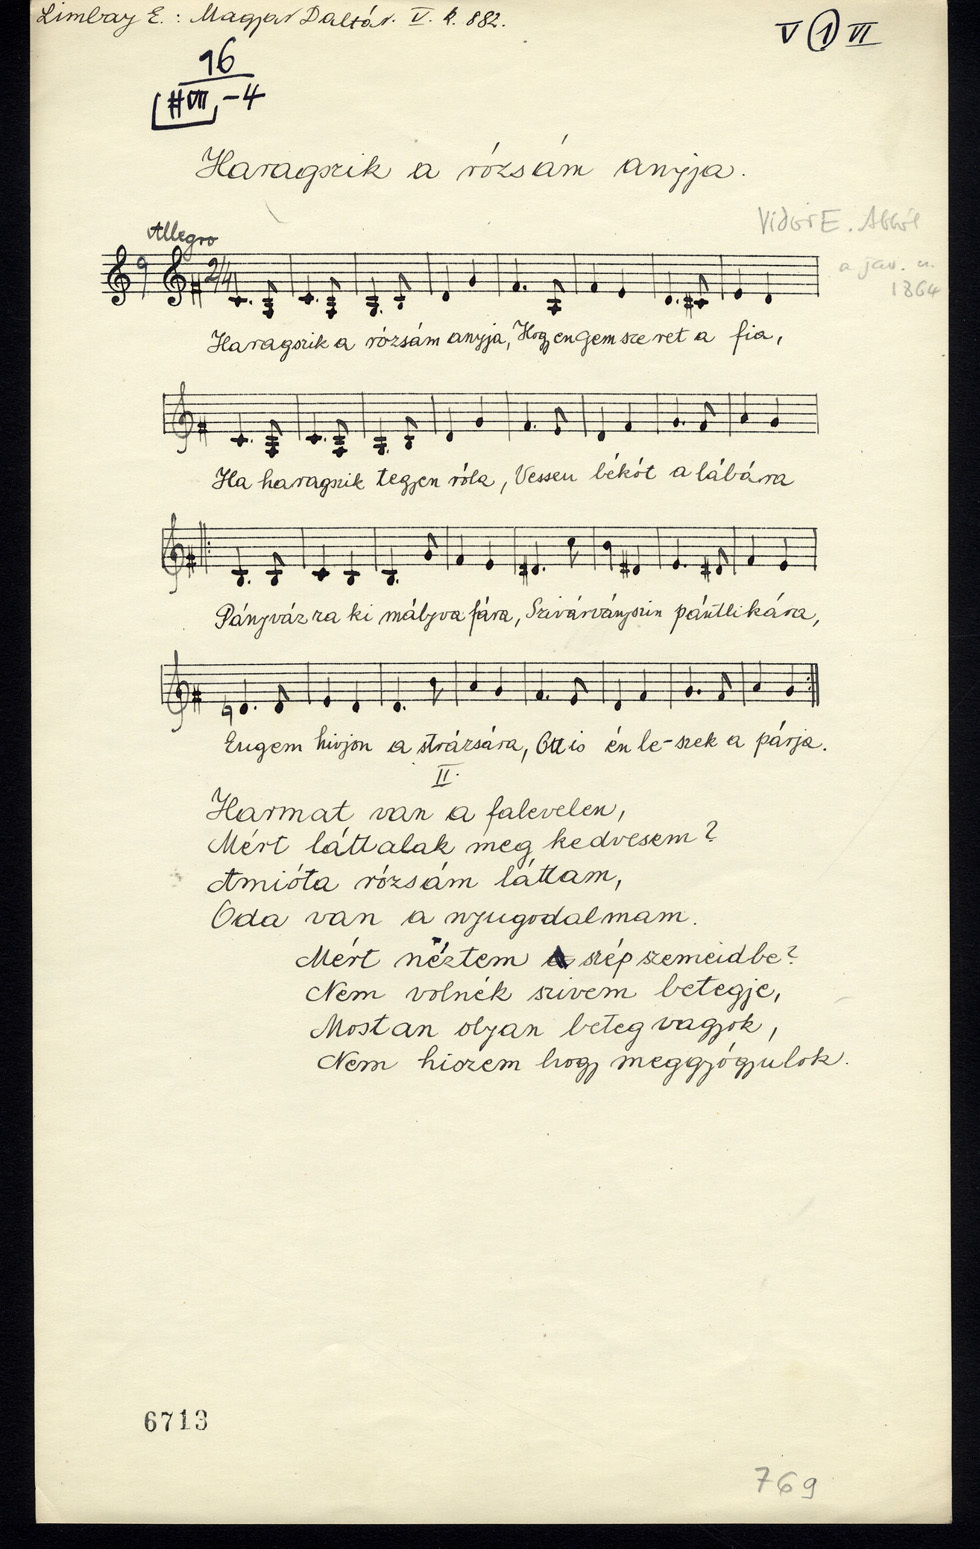 Limbay E.: Magyar Daltár. V. k. 882.
V 1 VI
16
#VII -4
Haragszik a rózsám anyja.
Vidor E.
a jav. u.
1864
Allegro
2/4
Haragszik a rózsám anyja, Hogy engem szeret a fia,
Ha haragszik tegyen róla, Vessen békót a lábára
Pányvázza ki mályva fára, Szivárványszin pántlikára,
Engem hivjon a strázsára, Ott is én le-szek a párja.
II.
Harmat van a falevelen,
Mért láttalak meg kedvesem?
Amióta rózsám láttam,
Oda van a nyugodalmam.
Mért néztem szép szemeidbe?
Nem volnék szivem betegje,
Mostan olyan beteg vagyok,
Nem hiszem hogy meggyógyulok.
6713
769